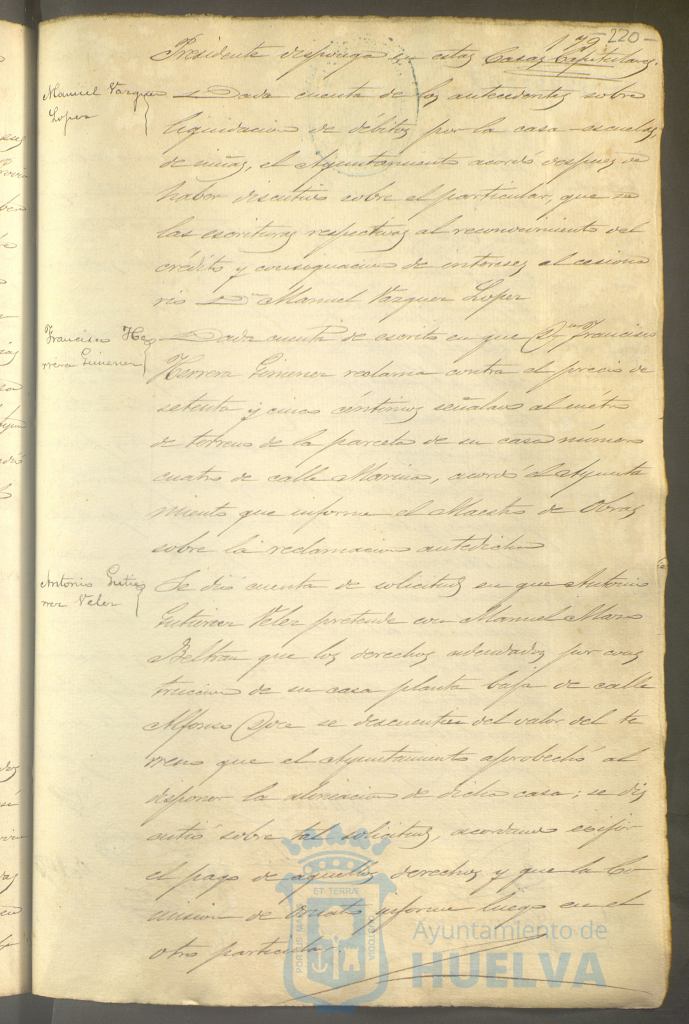 220
179
Presidente disponga en estas Casas Capitulares.
Manuel Vazquez
Lopez
Dada cuenta de los antecedentes sobre
liquidacion de débitos por la casa-escuela
de niñas, el Ayuntamiento acordó despues de
haber discutido sobre el particular, que se
las escrituras respectivas al reconocimiento del
crédito y consignacion de intereses al cesiona
rio Dn Manuel Vazquez Lopez
Francisco He
rrera Gimenez
Dada cuenta de escrito en que Dn Francisco
Herrera Gimenez reclama contra el precio de
setenta y cinco céntimos señalado al metro
de terreno de la parcela de su casa número
cuatro de calle Marina, acordó el Ayunta
miento que informe el Maestro de Obras
sobre la reclamacion antedicha
Antonio Gutie
rrez Velez
Se dió cuenta de solicitud en que Antonio
Gutierrez Velez pretende con Manuel Maro
Beltran que los derechos adeudados por cons
truccion de su casa planta baja de calle
Alfonso Doce se descuenten del valor del te
rreno que el Ayuntamiento aprobechó al
disponer la alineacion de dicha casa; se dis
cutió sobre tal solicitud, acordando exijir
el pago de aquellos derechos y que la Co
mision de Ornato informe luego en el
otro particular
PORTUS MARIS
ET TERRÆ
CUSTODIA
Ayuntamiento de
HUELVA